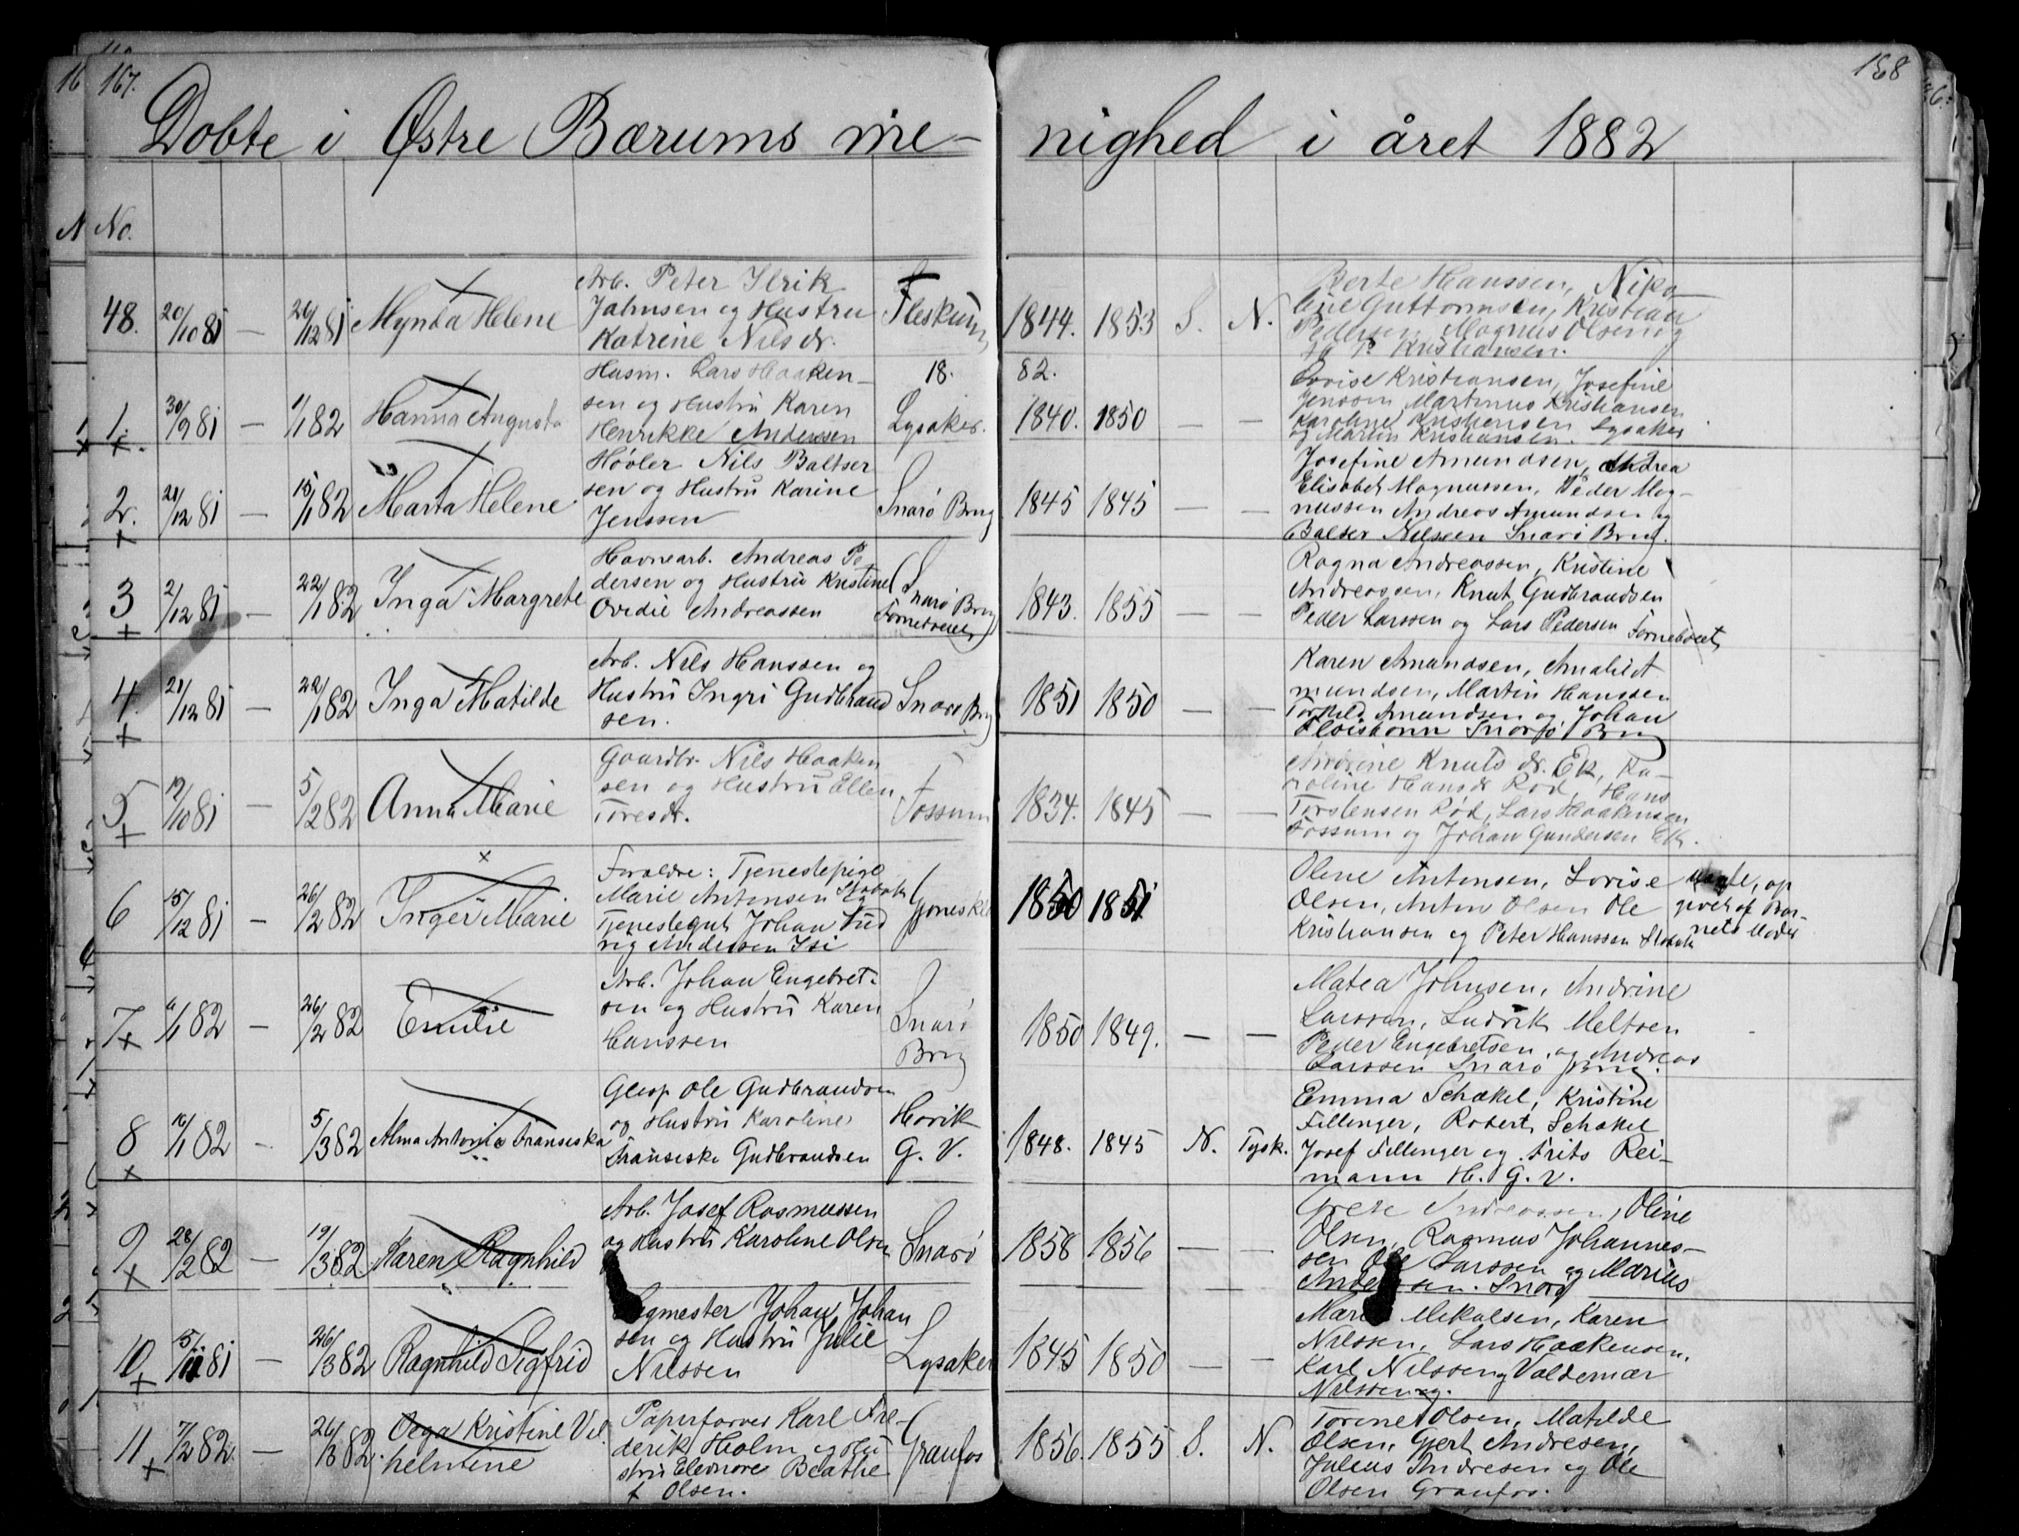 167.
168
Dobte i Østre Bærums me-
nighed i året 1882
No.
48. 20/10 81 — 26/12 81 Mynta Helene
Arb. Peter Ilrik
Jahnsen og Hustru
Katrine Nilsdr.
Fleskum
1844. 1853 S. N.
Berte Hanssen, Niko-
line Guttormsen, Kristian
Pedersen, Magnus Olsen og
Kristiansen.
18. 82.
1. 30/9 81 — 1/1 82 Hanna Augusta
Husm. Lars Haaken-
sen og Hustru Karen
Henrikke Andersen
Lysaker.
1840. 1850 — —
Lovise Kristiansen, Josefine
Jenssen, Martinus Kristiansen
Karoline Kristiansen Lysaker
og Martin Kristiansen.
2. 21/12 81 — 15/1 82 Marta Helene
Høvler Nils Baltser
sen og Hustru Karine
Jenssen
Snarø Brug
1845 1845 — —
Josefine Amundsen, Andrea
Elisabet Magnussen, Peder Mag-
nussen Andreas Amundsen og
Balser Nilssen Snarø Brug.
3 2/12 81 — 22/1 82 Inga Margrete
Havnearb. Andreas Pe
dersen og Hustru Kristine
Ovidie Andreassen
Snarø Brug
1843. 1855 — —
Ragna Andreassen, Kristine
Andreassen, Knut Gudbrandsen
Peder Larssen og Lars Pedersen
4. 21/12 81 — 22/1 82 Inga Matilde
Arb. Nils Hanssen og
Hustru Ingri Gudbrand
sen.
Snarø Brug
1851 1850 — —
Karen Amundsen, Amalie A
mundsen, Martin Hanssen
Torkild Amundsen og Johan
Snarø Brug
5 19/10 81 — 5/2 82 Anna Marie
Gaardbr. Nils Haaken
sen og Hustru Ellen
Toresdr.
Fossum
1834. 1845 — —
Andrine Knutsdr. Ek, Ka-
roline Hansdr Rød, Hans
Torstensen Rød, Lars Haakensen
Fossum og Johan Gundersen Ek.
6 15/12 81 — 26/2 82 Inger Marie
Foraldre: Tjenestepige
Marie Antonsen Stabæk
Tjenestegut Johan Lud
vig Andersen Isi
Gjøneskl.
1850 1851
Olene Antonsen, Lovise
Olsen, Anton Olsen Ole
Kristiansen og Peter Hanssen Stabæk
uægte, op
givet af Bar-
nets Moder
7 6/1 82 — 26/2 82 Emilie
Arb. Johan Engebret-
sen og Hustru Karen
Hanssen
Snarø
Brug
1850 1849. — —
Matea Johnsen, Andrine
Larssen, Ludvik Meltsen
Peder Engebretsen, og Andreas
Larssen Snarø Brug.
8 10/1 82 — 5/3 82 Alma Antonie Fransiska
Glasp Ole Gudbrandsen
og Hustru Karoline
Fransiska Gudbrandsen
Høvik
G. V.
1848. 1845 N. Tysk.
Emma Schækel, Kristine
Fillinger, Robert Schækel
Josef Fillinger og Frits Rei-
mann H. G. V.
9 28/2 82 — 19/3 82 Karen Ragnhild
Arb. Josef Rasmussen
og Hustru Karoline Olsen
Snarø
1858 1856 — —
Grete Andreassen, Oline
Olsen, Rasmus Johannes-
sen Ole Larssen og Marius
Andersen. Snarø
10 5/11 81 — 26/3 82 Ragnhild Sigfrid
Sagmester Johan Johan
sen og Hustru Julie
Nilssen
Lysaker
1845 1850 — —
Marie Mikalsen, Karen
Nilssen, Lars Haakensen,
Karl Nilssen og Valdemar
Nilssen
11 7/2 82 — 26/3 82. Olga Kristine Vil
helmine
Papirfarver Karl Fre-
derik Holm og Hu
stru Eleonore Beathe
f Olsen.
Granfos
1856. 1855 S. N.
Torine Olsen, Matilde
Olsen, Gjert Andresen,
Julius Andresen og Ole
Olsen Granfos.